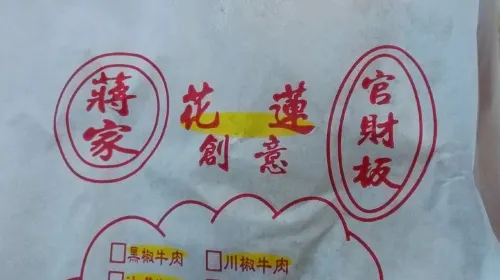 蔣家
花蓮
創意
官財板
□黑椒牛肉 □川椒牛肉